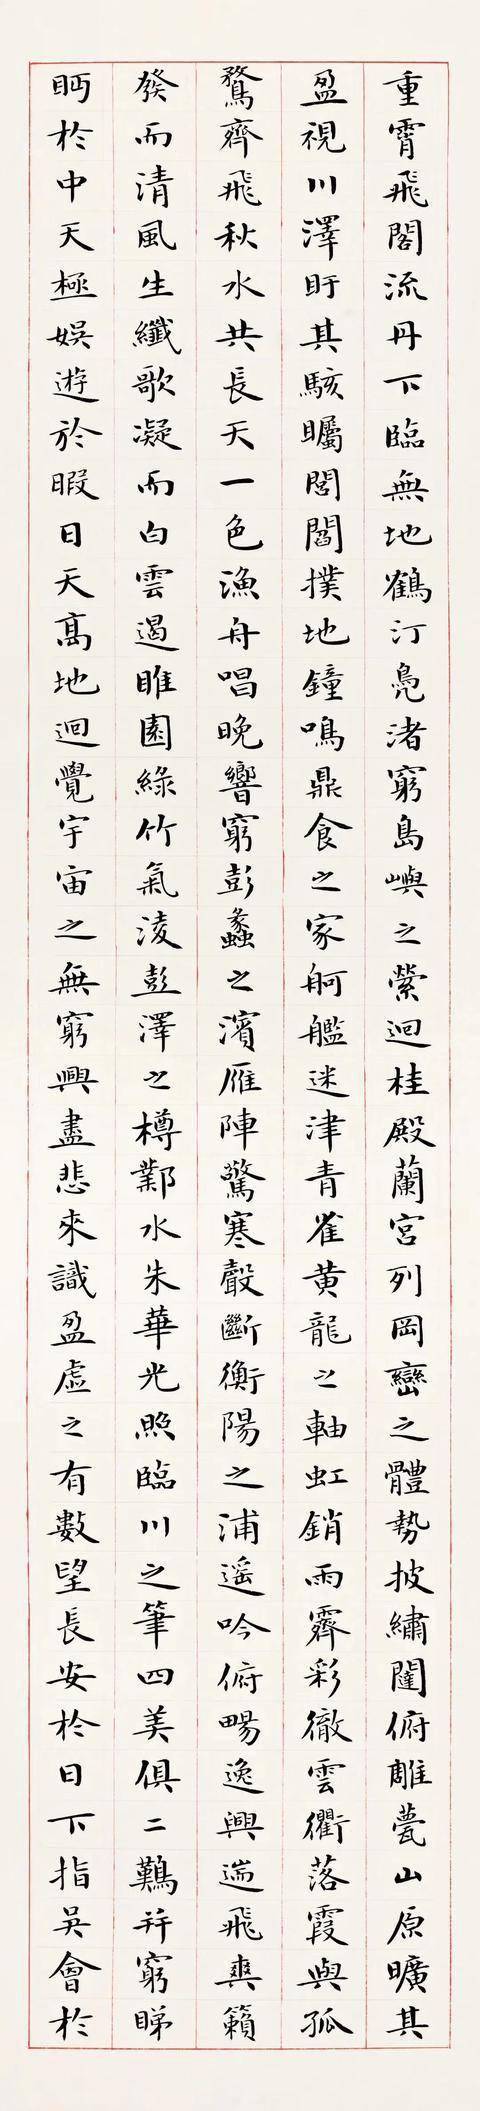 重霄飛閣流丹下臨無地鶴汀鳧渚窮島嶼之縈迴桂殿蘭宮列岡巒之體勢披繡闥俯雕甍山原曠其
盈視川澤盱其駭矚閭閻撲地鐘鳴鼎食之家舸艦迷津青雀黃龍之軸虹銷雨霽彩徹雲衢落霞與孤
鶩齊飛秋水共長天一色漁舟唱晚響窮彭蠡之濱雁陣驚寒聲斷衡陽之浦遥吟俯暢逸興遄飛爽籟
發而清風生纖歌凝而白雲遏睢園綠竹氣淩彭澤之樽鄴水朱華光照臨川之筆四美俱二難并窮睇
眄於中天極娛遊於暇日天高地迥覺宇宙之無窮興盡悲來識盈虛之有數望長安於日下指吳會於